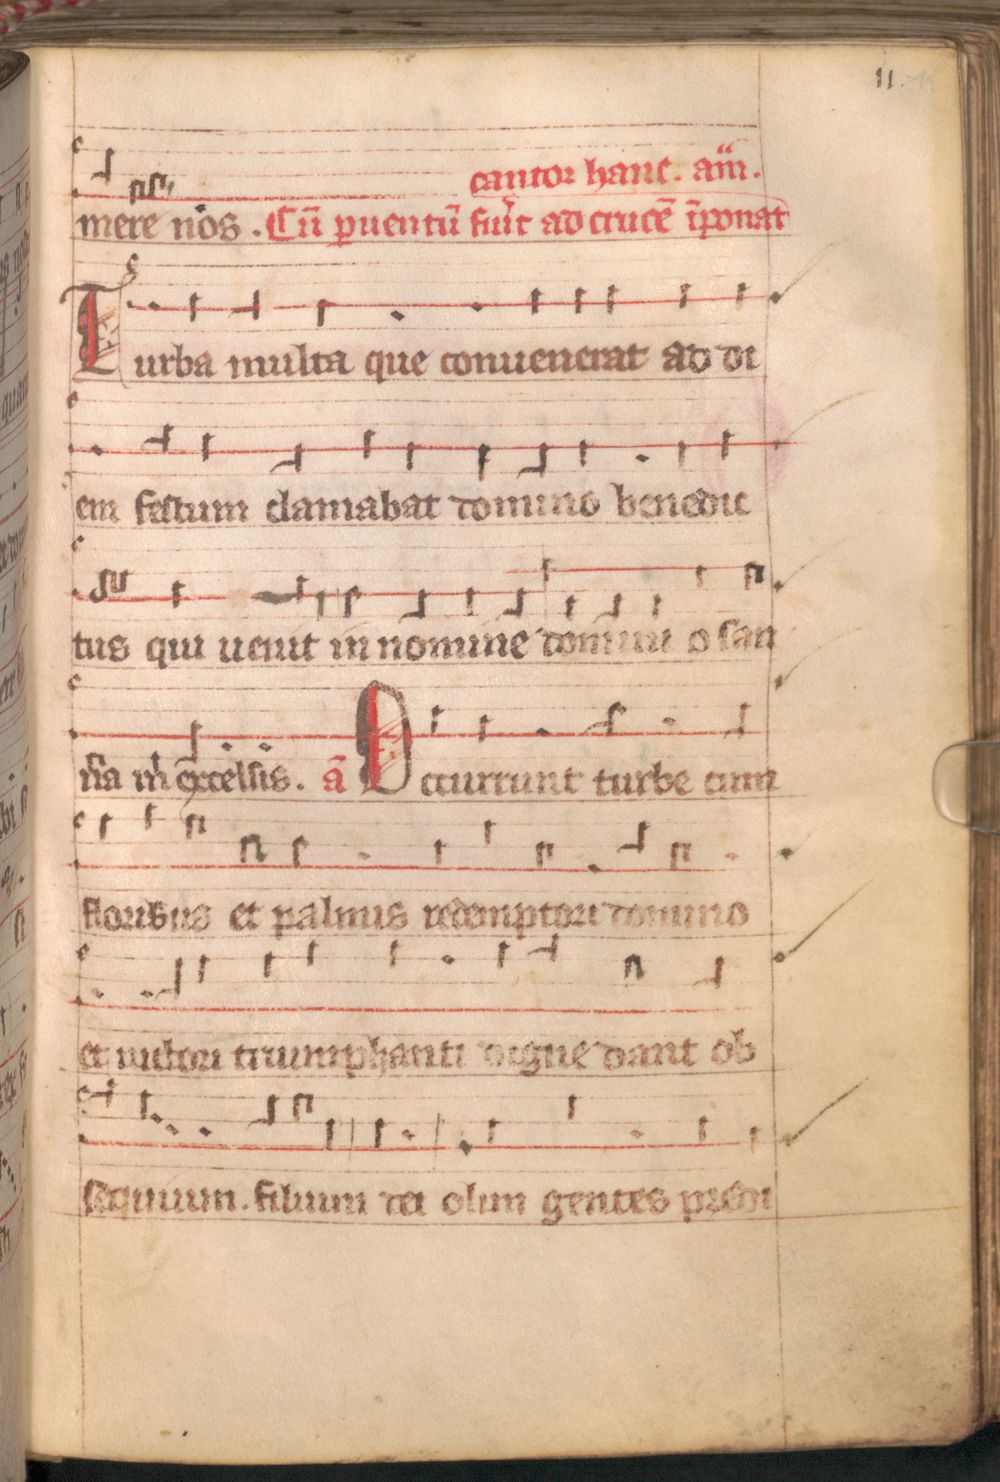 11.
cantor hanc. am̄.
mere nos. Cū ꝑuentū fiūt ad crucē īponat
Turba multa que conuenerat ad di
em festum clamabat domino benedic
tus qui uenit in nomine domini osan
na in excelsis. a᷉ Occurrunt turbe cum
floribus et palmis redemptori domino
et uictori triumphanti digne dant ob
sequium. filium dei olim gentes predi